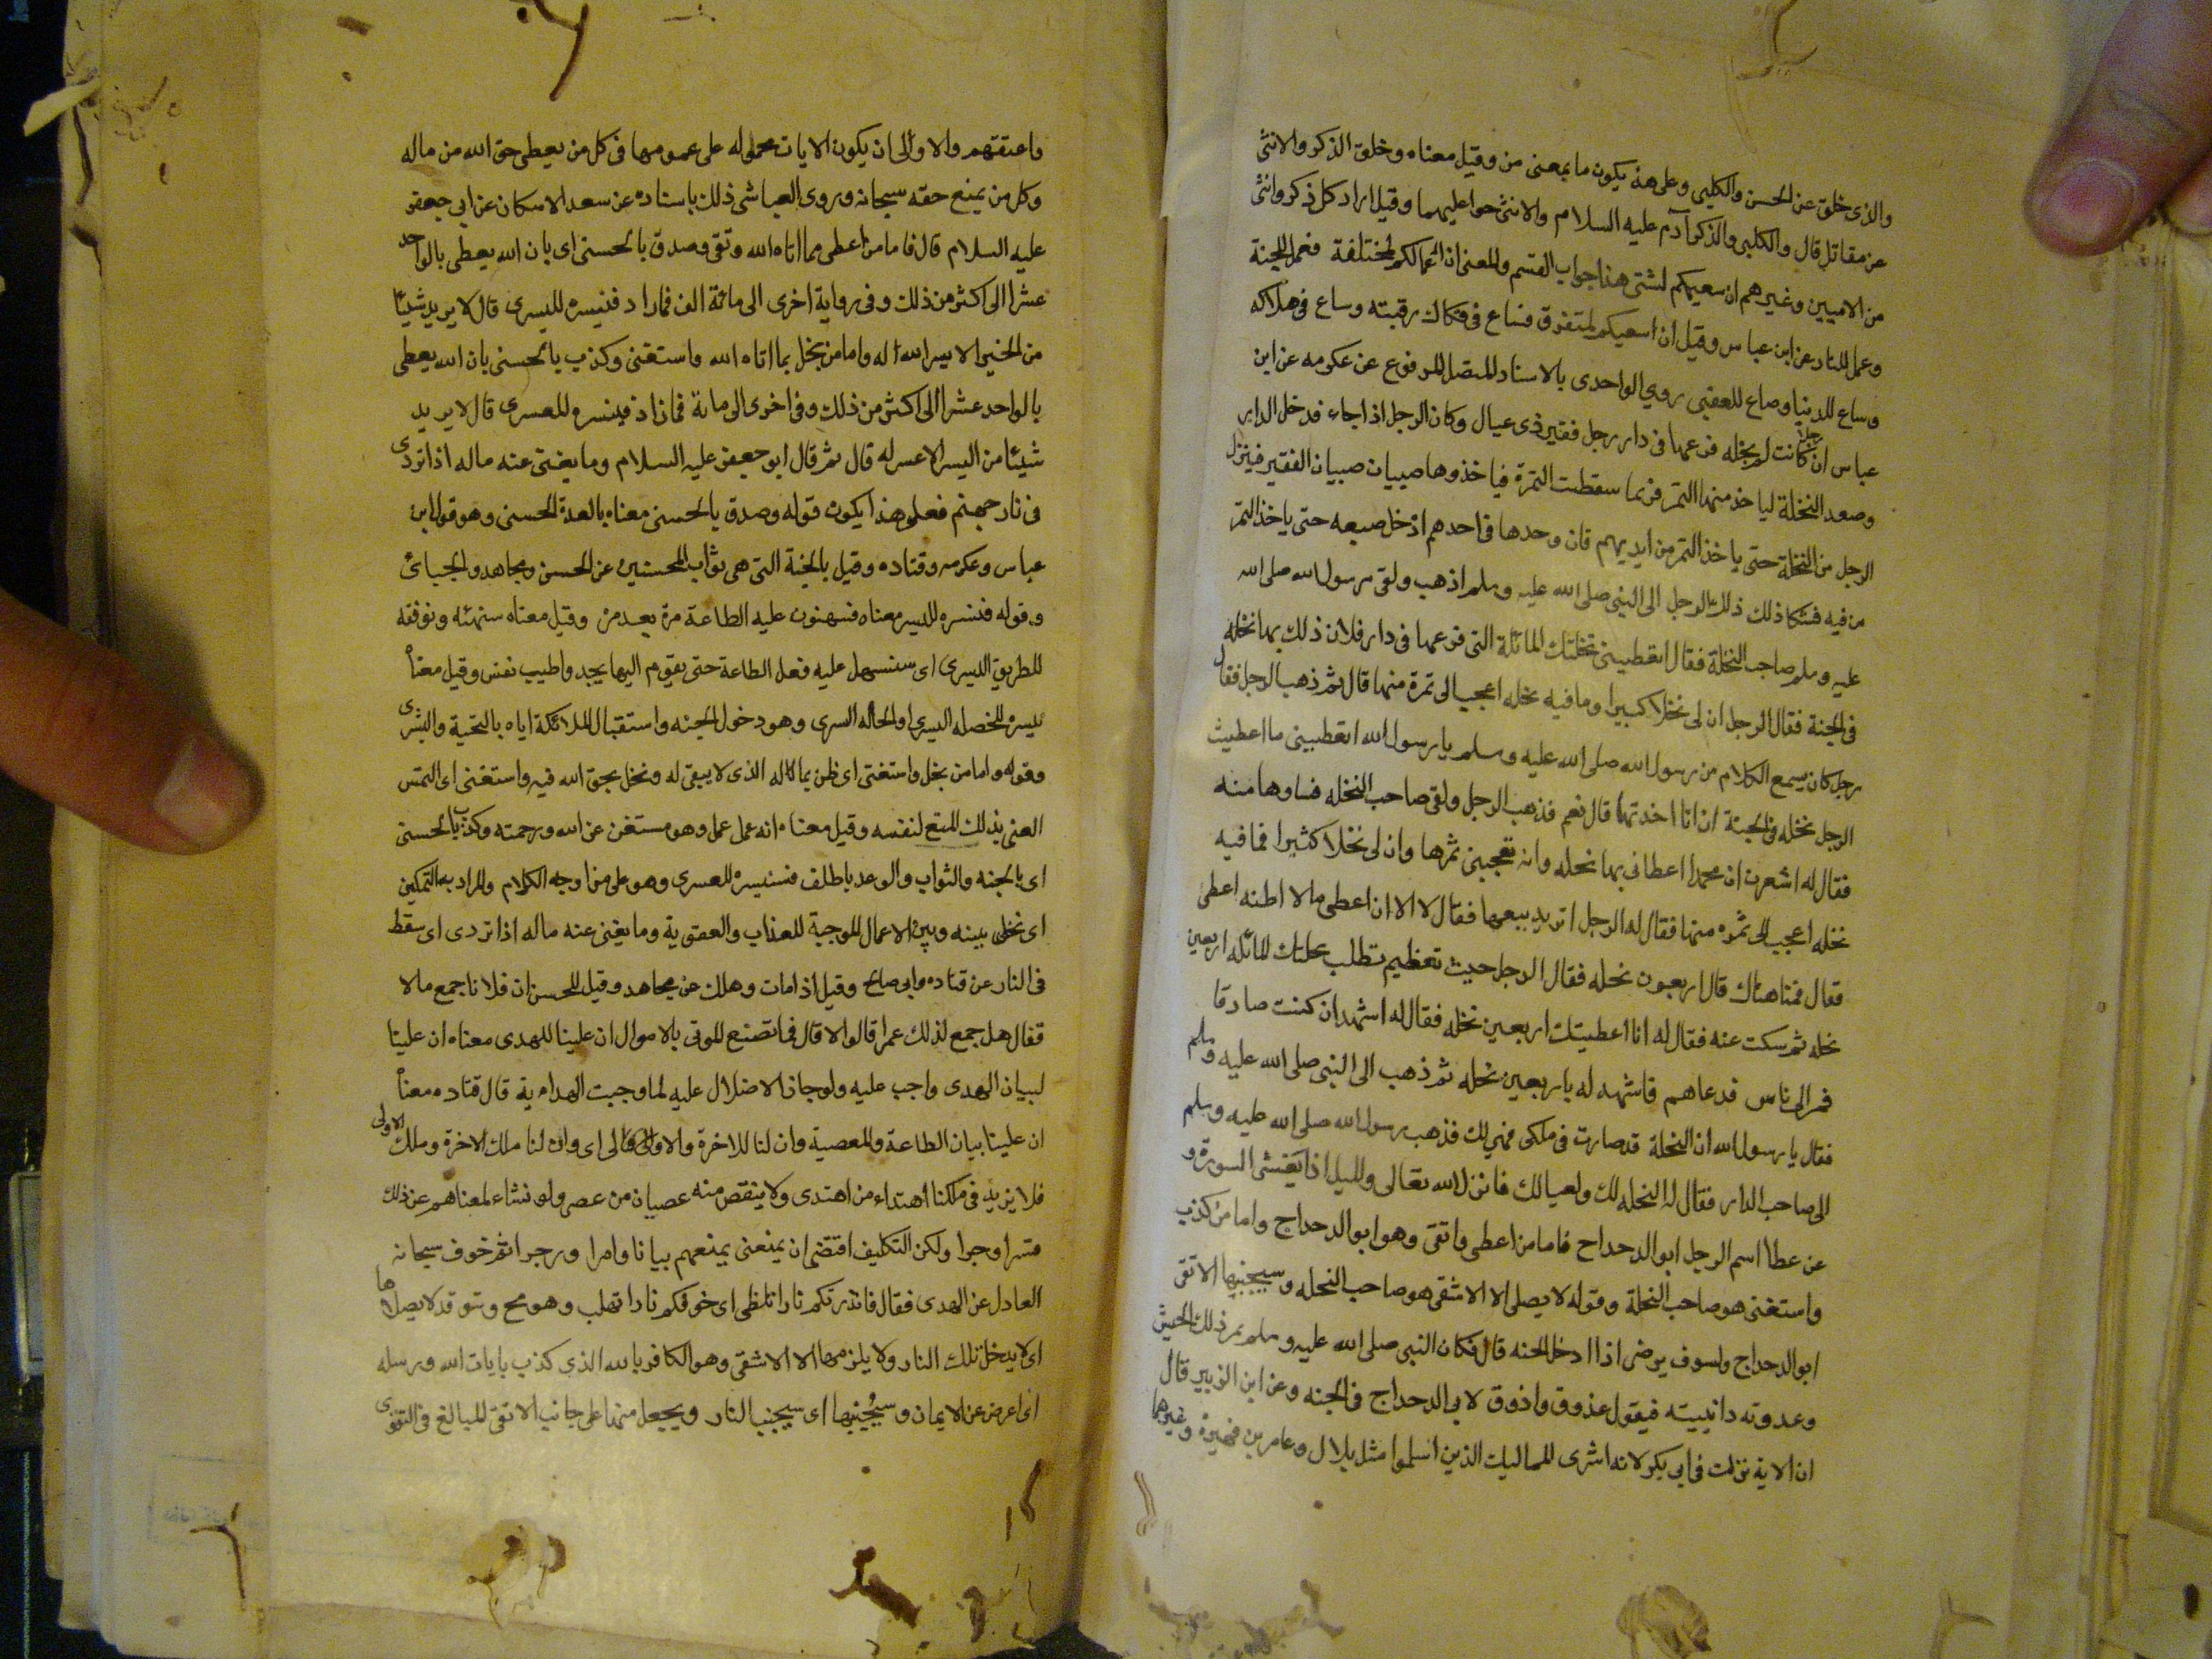 والذى خلق عن الحسن والكلبى وعلى هذا يكون ما بمعنى من وقيل معناه وخلق الذكر والانثى
عن مقاتل قال والكلبى والذكر آدم عليه السلام والانثى حوا عليهما وقيل اراد كل ذكر وانثى
من الادميين وغيرهم ان سعيكم لشتى هذا جواب القسم والمعنى ان اعمالكم لمختلفة فعمل للجنة
وعمل للنار عن ابن عباس وقيل ان اسعيكم لمتفرق فساع فى فكاك رقبته وساع فى هلاكه
وساع للدنيا وصاع للعقبى روى الواحدى بالاسناد المتصل المرفوع عن عكرمه عن ابن
عباس ان رجلا كانت له نخله فرعها فى دار رجل فقير ذى عيال وكان الرجل اذا جاء فدخل الدار
وصعد النخلة لياخذ منها التمر فربما سقطت التمرة فياخذوها صبيان صبيان الفقير فينزل
الرجل من النخلة حتى ياخذ التمر من ايديهم فان وحدها فى احدهم ادخل صبعه حتى ياخذ التمر
من فيه فشكا ذلك ذلك الرجل الى النبى صلى الله عليه وسلم اذهب ولقى رسول الله صلى الله
عليه وسلم صاحب النخلة فقال اتعطينى نخلتك المائلة التى فرعها فى دار فلان ذلك بها نخله
فى الجنة فقال الرجل ان لى نخلا كبيرا وما فيه نخله اعجب الى تمرة منها قال ثم ذهب الرجل فقال
رجل كان يسمع الكلام من رسول الله صلى الله عليه وسلم يا رسول الله اتعطينى ما اعطيت
الرجل نخله فى الجنة ان انا اخذتها قال نعم فذهب الرجل ولقى صاحب النخله فساوها منه
فقال له اشعرت ان محمدا اعطانى بها نخله وانه تعجبنى ثمرها وان لى نخلا كثيرا فما فيه
نخله اعجب الى ثمره منها فقال له الرجل اتريد بيعها فقال لا الا ان اعطى ما لا اظنه اعطى
فقال فمنا هناك قال اربعون نخله فقال الرجل حيث تعظيم تطلب نخلتك المائله اربعين
نخله ثم سكت عنه فقال له انا اعطيتك اربعين نخله فقال له اشهد ان كنت صادقا
فمر الى ناس فدعاهم فاشهد له باربعين نخله ثم ذهب الى النبى صلى الله عليه وسلم
فقال يا رسول الله ان النخلة قد صارت فى ملكى فهى لك فذهب رسول الله صلى الله عليه وسلم
الى صاحب الدار فقال له النخله لك ولعيالك فانزل الله تعالى والليل اذا يغشى السورة و
عن عطا اسم الرجل ابو الدحداح فاما من اعطى واتقى وهو ابو الدحداح واما من كذب
واستغنى هو صاحب النخلة وقوله لا يصلى الا الاشقى هو صاحب النخله وسيجنبها الاتقى
ابو الدحداح ولسوف يرضى اذا ادخل الجنه قال فكان النبى صلى الله عليه وسلم يمر ذلك الحش
وعدوته دانيته فيقول عذوق واذوق لابى الدحداح فى الجنه وعن ابن الزبير قال
ان الاية نزلت فى ابى بكر لانه اشرى المماليك الذين اسلموا مثل بلال وعامر بن فهيرة وغيرهما
واعتقهم والاولى ان يكون الايات محموله على عمومها فى كل من يعطى حق الله من ماله
وكل من يمنع حقه سبحانه وروى العياشى ذلك باسناده عن سعد الاسكان عن ابى جعفر
عليه السلام قال فاما من اعطى مما اتاه الله وتقى وصدق بالحسنى اى بان الله يعطى بالواحد
عشرا الى اكثر من ذلك وفى رواية اخرى الى مائة الف فماراد فنيسره لليسرى قال لا يريد شيئا
من الخير الا يسر الله اله واما من بخل بما اتاه الله واستغنى وكذب بالحسنى بان الله يعطى
بالواحد عشرا الى اكثر من ذلك وفى اخرى الى ماية فمازاد فنيسره للعسرى قال لا يريد
شيئا من اليسر الا عسر له قال ثم قال ابو جعفر عليه السلام وما يغنى عنه ماله اذا تردى
فى نار جهنم فعلى هذا يكون قوله وصدق بالحسنى معناه بالعدة الحسنى وهو قول ابن
عباس وعكرمه وقتاده وقيل بالجنة التى هى ثواب المحسنين عن الحسن ومجاهد والجبائى
وقوله فنسره لليسر معناه فسهنون عليه الطاعة مرة بعد من وقيل معناه سنهئه ونوفقه
للطريق اليسرى اى سنسهل عليه فعل الطاعة حتى يقوم اليها بجد واطيب نفس وقيل معناه
نيسره للخصله اليسرى او الحاله السرى وهو دخول الجنه واستقبال الملائكة اياه بالتحية والبشرى
وقوله واما من بخل واستغنى اى ظن بماله الذى لا يبقى له وبخل بحق الله فيه واستغنى اى التمس
الغنى بذلك المنع لنفسه وقيل معناه انه عمل عمل وهو مستغن عن الله ورحمته وكذب بالحسنى
اى بالجنه والثواب والوعد باطلف فسنيسره للعسرى وهو على مزاوجه الكلام والمراد به التمكين
اى نخلى بينه وبين الاعمال الموجبة للعذاب والعقوبة وما يغنى عنه ماله اذا تردى اى سقط
فى النار عن قتاده وابى صالح وقيل اذا مات وهلك عن مجاهد وقيل للحسن ان فلانا جمع مالا
فقال هل جمع لذلك عمرا قالوا لا قال فما تصنع الموتى بالاموال ان علينا للهدى معناه ان علينا
لبيان الهدى واجب عليه ولو جاز الاضلال عليه لما وجبت الهداية قال قتاده معناه
ان علينا بيان الطاعة والمعصية وان لنا للاخرة والاولى اى وان لنا ملك الاخرة وملك الاولى
فلا يزيد فى ملكنا اهتداء من اهتدى ولا ينقص منه عصيان من عصى ولو نشاء لمعناهم عن ذلك
قسرا وجبرا ولكن التكليف اقتضى ان يمنعنى بمنعهم بيانا وامرا وزجرا ثم خوف سبحانه
العادل عن الهدى فقال فانذرتكم نارا تلظى اى خوفكم نارا تهلب وهو مح وتتوقد لا يصلاها
اى لا يدخل تلك النار ولا يلزمها الا الاشقى وهو الكافر بالله الذى كذب بايات الله ورسله
اى اعرض عن الايمان وسيجنبها اى سيجنب النار ويجعل منها على جانب الاتقى المبالغ فى التقوى